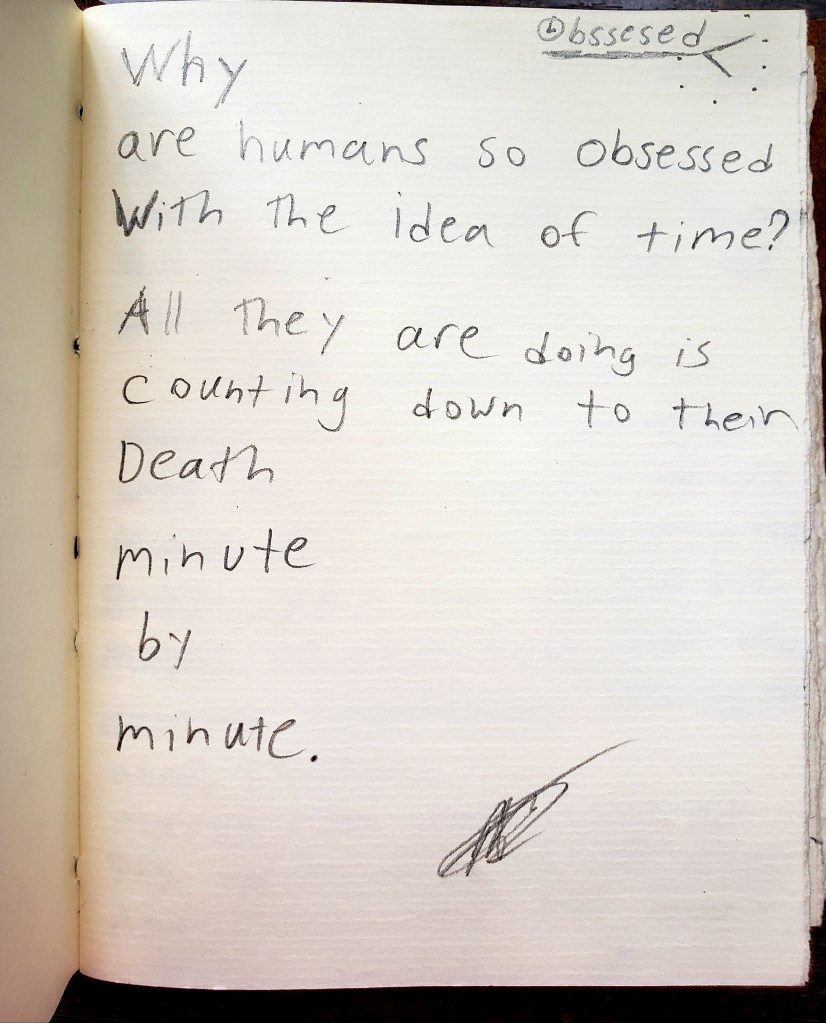 Obssesed
Why
are humans so obsessed
With the idea of time?
All they are doing is
counting down to their
Death
minute
by
minute.